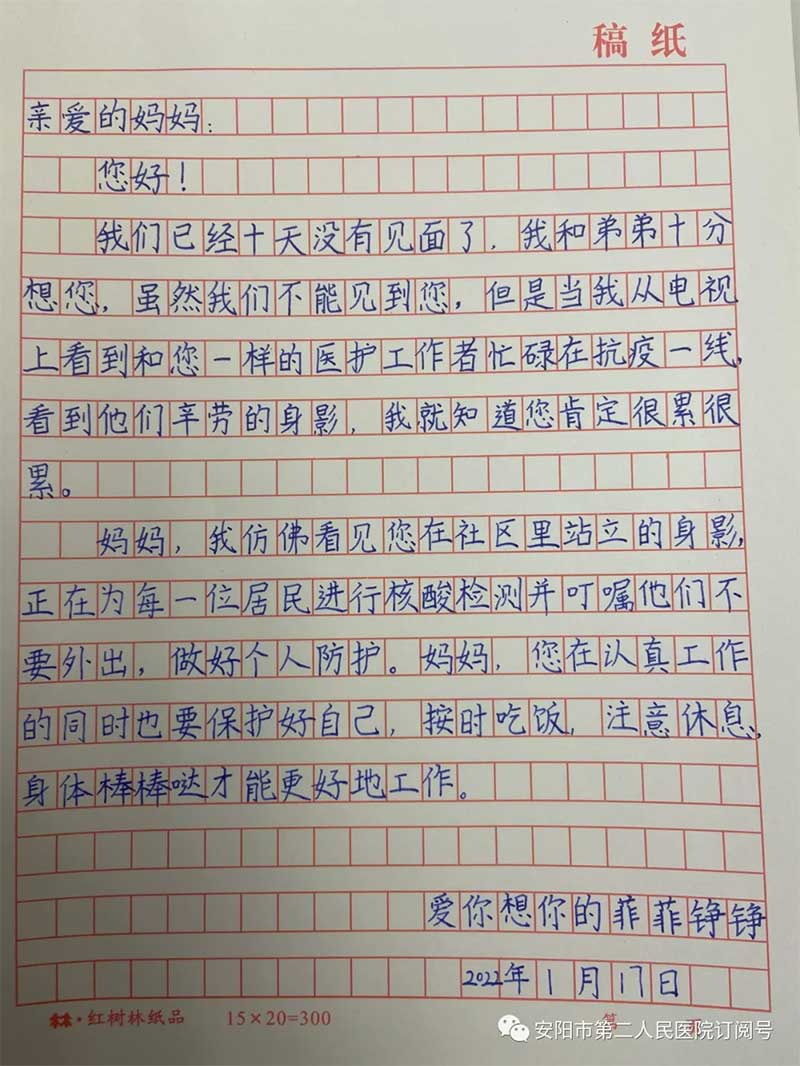 稿纸
亲爱的妈妈：
您好！
我们已经十天没有见面了，我和弟弟十分
想您，虽然我们不能见到您，但是当我从电视
上看到和您一样的医护工作者忙碌在抗疫一线，
看到他们辛劳的身影，我就知道您肯定很累很
累。
妈妈，我仿佛看见您在社区里站立的身影，
正在为每一位居民进行核酸检测并叮嘱他们不
要外出，做好个人防护。妈妈，您在认真工作
的同时也要保护好自己，按时吃饭，注意休息，
身体棒棒哒才能更好地工作。
爱你想你的菲菲铮铮
2022年1月17日
·红树林纸品 15×20=300 第 页
安阳市第二人民医院订阅号